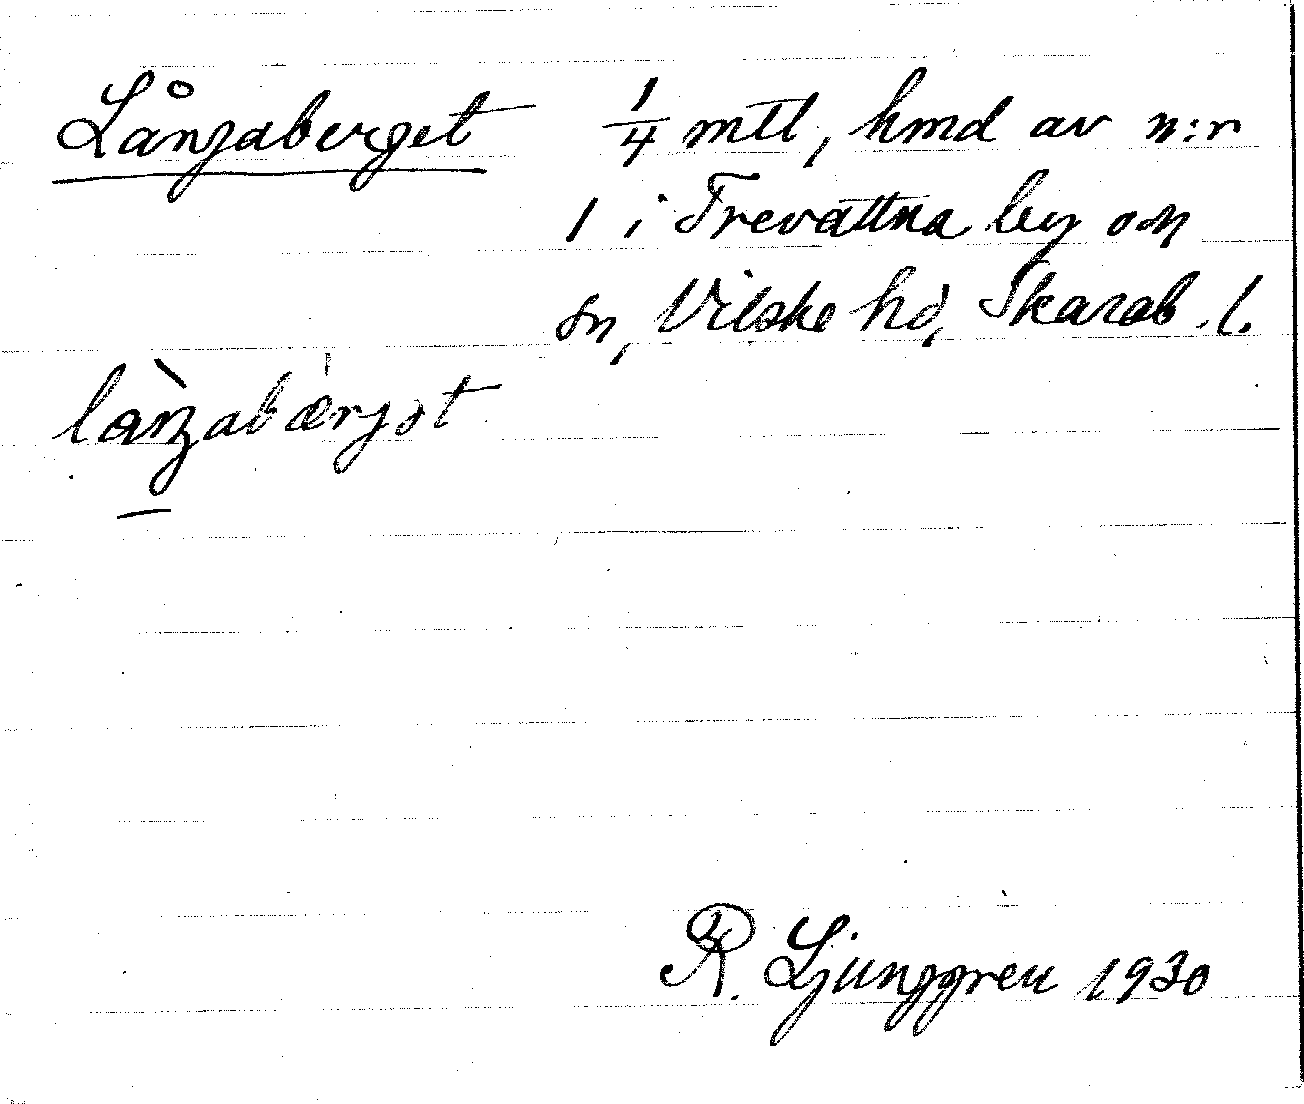 Långaberget 1/4 mtl, hmd av n:r
1 i Trevattna by och
sn, Vilske hd, Skarab. l.
R. Ljunggren 1930